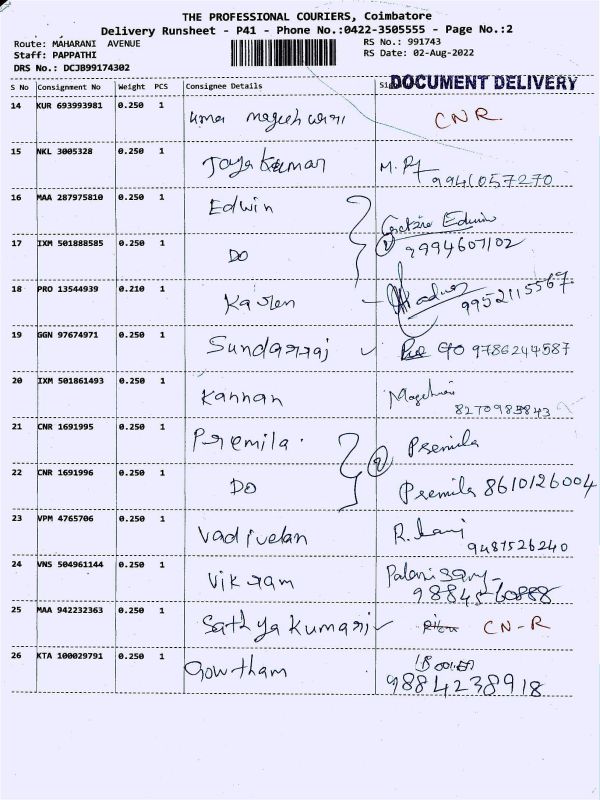 THE PROFESSIONAL COURIERS, Coimbatore
Delivery Runsheet - P41 - Phone No.:0422-3505555 - Page No.:2
Route: MAHARANI AVENUE RS No.: 991743
Staff: PAPPATHI RS Date: 02-Aug-2022
DRS No.: DCJB99174302
DOCUMENT DELIVERY
S No Consignment No Weight PCS Consignee Details
14 KUR 693993981 0.250 1 uma mageshwari CNR
15 NKL 3005328 0.250 1 Jayakumar 9946057270
16 MAA 287975810 0.250 1 Edwin Edwin
17 IXM 501888585 0.250 1 DO 2 9994607102
18 PRO 13544939 0.210 1 9952115567
19 GGN 97674971 0.250 1 Sundarraj 9786244587
20 IXM 501861493 0.250 1 Kannan 8270985843
21 CNR 1691995 0.250 1 Premila 2 Premila
22 CNR 1691996 0.250 1 DO Premila 8610126004
23 VPM 4765706 0.250 1 Vadivelan 9487526240
24 VNS 504961144 0.250 1 Vikram Palanisamy
9884560888
25 MAA 942232363 0.250 1 Sathyakumari CN-R
26 KTA 100029791 0.250 1 Gowtham
9884238918